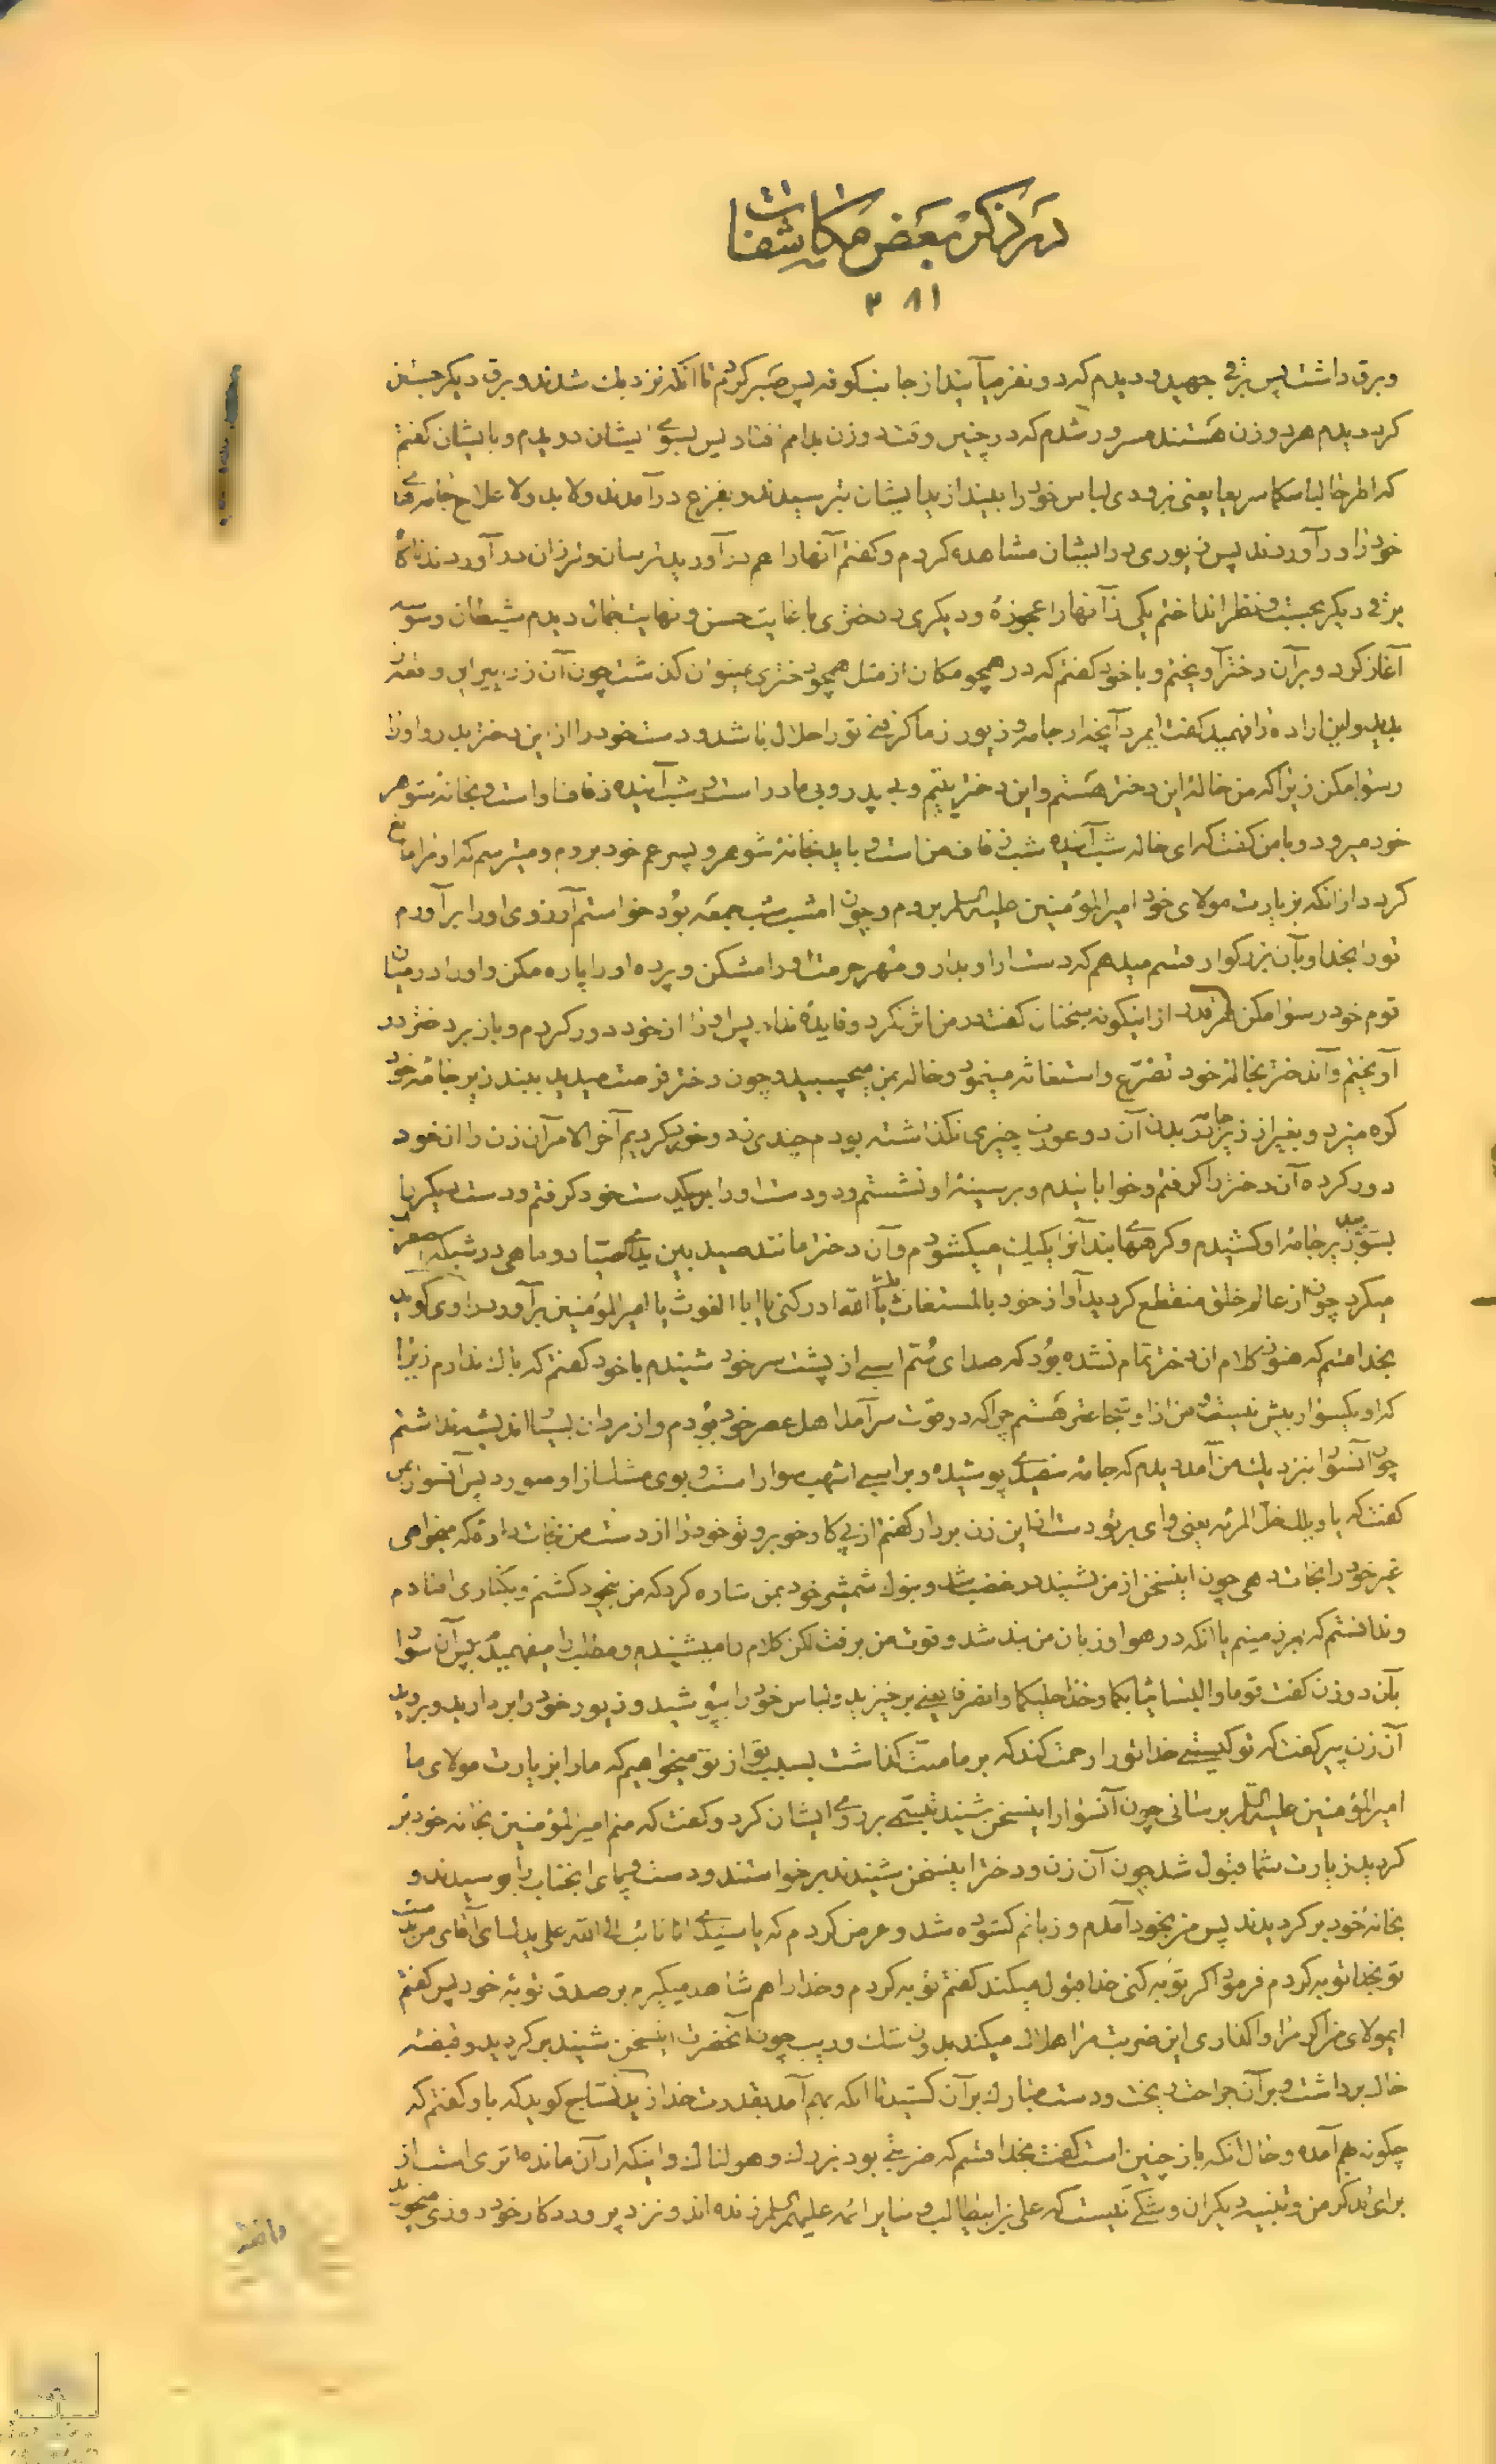 در ذکر بعض مکاشفات
۳۸۱
و برق داشت پس برقی جهید و دیدم که دو نفر میآیند از جانب کوفه پس صبر کردم تا آنکه نزدیک شدند و برق دیگر جستن
کرد دیدم هر دو زن هستند مسرور شدم که در چنین وقت دو زن بدام افتاد پس بسوی ایشان دویدم و بایشان گفتم
که اطرحا لباسکما سریعا یعنی بزودی لباس خود را بیندازید ایشان بترسیدند و بفزع درآمدند ولابد ولاعلاج جامهای
خود را درآوردند پس زیوری در ایشان مشاهده کردم و گفتم آنها را هم درآورید ترسان و لرزان درآوردند ناگاه
برقی دیگر بجست و نظر انداختم یکی از آنها را عجوزه و دیگری دختری با غایت حسن و نهایت جمال دیدم شیطان وسوسه
آغاز کرد و بر آن دختر آویختم و با خود گفتم که در همچو مکان از مثل همچو دختری نمیتوان گذشت چون آن زن پیر این واقعه
بدید و این اراده را فهمید گفت ایمرد آنچه از جامه و زیور از ما گرفتی تو را حلال باشد و دست خود را از این دختر بدار و او را
رسوا مکن زیرا که من خاله این دختر هستم و این دختر یتیم و بی پدر و بی مادر است و شب آینده زفاف او است و بخانه شوهر
خود میرود و با من گفت که ای خاله شب آینده شب زفاف من است و باید بخانه شوهر و پسر عم خود بروم و میترسم که او مرا مانع
گردد از آنکه بزیارت مولای خود امیرالمؤمنین علیه السلم بروم و چون امشب شب جمعه بود خواستم آرزوی او را برآورم
تو را بخدا و بآن بزرگوار قسم میدهم که دست از او بدار و مهر حرمت او را مشکن و پرده او را پاره مکن و او را در میان
قوم خود رسوا مکن هر قدر از اینگونه سخنان گفت در من اثر نکرد و فایده نداد پس او را از خود دور کردم و باز بر دختر در
آویختم و آندختر بخاله خود تضرع و استغاثه مینمود و خاله بمن میچسبید و چون دختر فرصت میدید ببند زیر جامه خود
گره میزد و بغیر از زیر جامه بر بدن آن دو عورت چیزی نگذاشته بودم چندی زد و خورد کردیم آخر الامر آن زن را از خود
دور کرده آن دختر را گرفتم و خوابانیدم و بر سینه او نشستم و دو دست او را بیکدست خود گرفتم و دست دیگر را
بسوی بند زیر جامه او کشیدم و گرههای بند آنرا یکیک میکشودم و آن دختر مانند صید بین یدی صیاد و ماهی در شبکه
میکرد چون از عالم خلق منقطع گردید آواز خود بالمستغاث بک یا الله ادرکنی یا ابا الغوث یا امیرالمؤمنین برآورد راوی گوید
بخدا قسم که هنوز کلام آن دختر تمام نشده بود که صدای سُم اسبی از پشت سر خود شنیدم با خود گفتم که باک ندارم زیرا
که او یکسوار بیش نیست و من از او شجاعتر هستم چرا که در قوت سرآمد اهل عصر خود بودم و از مردان بسیار اندیشه نداشتم
چون آنسوار بنزدیک من آمد دیدم که جامه سفیدی پوشیده و بر اسبی اشهب سوار است و بوی مشک از او میوزد پس آنسوار بمن
گفت که یا ویلک خل المرئه یعنی وای بر تو دست از این زن بردار گفتم از پی کار خود برو تو خود را از دست من نجات داده که میخواهی
غیر خود را نجات دهی چون اینسخن از من شنید در غضب شد و بنوک شمشیر خود بمن اشاره کرد که من بیخود گشتم و بکناری افتادم
و ندانستم که بر زمینم یا آنکه در هوا و زبان من بند شد و قوت من برفت لکن کلام را میشنیدم و مطلب را میفهمیدم پس آن سوار
بآن دو زن گفت قوما والبسا ثیابکما وخذا حلیکما وانصرفا یعنی برخیزید و لباس خود را بپوشید و زیور خود را بردارید و بروید
آن زن پیر گفت که تو کیستی خدا تو را رحمت کند که بر ما منّت گذاشت بسبب تو از تو میخواهیم که ما را بزیارت مولای ما
امیرالمؤمنین علیه السلم برسانی چون آنسوار اینسخن شنید تبسّمی بر روی ایشان کرد و گفت که منم امیرالمؤمنین بخانه خود بر
گردید زیارت شما قبول شد چون آن زن و دختر اینسخن شنیدند برخواستند و دست و پای انجناب را بوسیدند و
بخانه خود برگردیدند پس من بخود آمدم و زبانم گشوده شد و عرض کردم که یا سیدی انا تائب الی الله علی یدک ای آقای من بر دست
تو بخدا توبه کردم فرمود اگر توبه کنی خدا قبول میکند گفتم توبه کردم و خدا را هم شاهد میگیرم بر صدق توبه خود پس گفتم
ایمولای من اگر مرا واگذاری این ضربت مرا هلاک میکند بدون شک و ریب چون آنحضرت اینسخن شنید برگردید و قبضه
خاک برداشت و بر آن جراحت ریخت و دست مبارک بر آن کشید تا آنکه بهم آمد بقدرت خدا زید نساج گوید که باو گفتم که
چگونه بهم آمده و حال آنکه باز چنین است گفت بخدا قسم که ضربتی بود بزرگ و هولناک و اینکه از آن مانده اثری است از
برای تذکر من و تنبیه دیگران و شکی نیست که علی بن ابیطالب و سایر ائمه علیهم السلم زنده اند و نزد پروردگار خود روزی میخورند